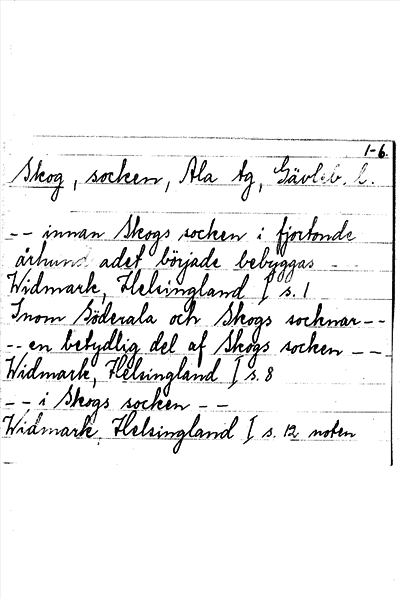 1-6.
Skog, socken, Ala tg, Gävleb. l.
-- innan Skogs socken i fjortonde
århundradet började bebyggas --
Widmark, Helsingland I s. 1
Inom Söderala och Skogs socknar--
--en betydlig del af Skogs socken --
Widmark, Helsingland I s. 8
-- i Skogs socken --
Widmark, Helsingland I s. 12 noten